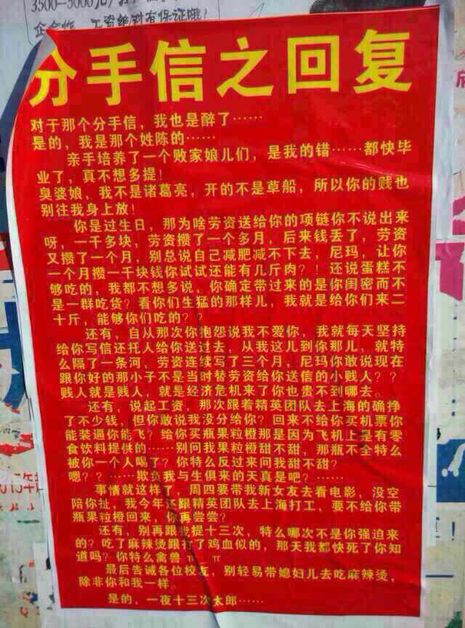 3500-5000元
分手信之回复
对于那个分手信，我也是醉了……
是的，我是那个姓陈的……
亲手培养了一个败家娘儿们，是我的错……都快毕
业了，真不想多提！
臭婆娘，我不是诸葛亮，开的不是草船，所以你的贱也
别往我身上放！
你是过生日，那为啥劳资送给你的项链你不说出来
呀，一千多块，劳资攒了一个多月，后来钱丢了，劳资
又攒了一个月，别总说自己减肥减不下去，尼玛，让你
一个月攒一千块钱你试试还能有几斤肉？！还说蛋糕不
够吃的，我都不想多说，你确定带过来的是你闺密而不
是一群吃货？看你们生猛的那样儿，我就是给你们来二
十斤，能够你们吃的？？
还有，自从那次你抱怨说我不爱你，我就每天坚持
给你写信还托人给你送过去，从我这儿到你那儿，就特
么隔了一条河，劳资连续写了三个月，尼玛你敢说现在
跟你好的那小子不是当时替劳资给你送信的小贱人？？
贱人就是贱人，就是经济危机来了你也贵不到哪去。
还有，说起工资，那次跟着精英团队去上海的确挣
了不少钱，但你敢说我没分给你？回来不给你买机票你
能装逼你能飞？给你买瓶果粒橙那是因为飞机上是有零
食饮料提供的……别问我果粒橙甜不甜，那瓶不全特么
被你一个人喝了？你特么反过来问我甜不甜？
嗯？？……欺负我与生俱来的天真是吧？……
事情就这样了，周四要带我新女友去看电影，没空
陪你扯，我今年还跟精英团队去上海打工，要不给你带
瓶果粒橙回来，你再尝尝？
还有，别再跟我提十三次，特么哪次不是你强迫来
的？吃了麻辣烫跟打了鸡血似的，那天我都快死了你知
道吗？你特么禽兽
最后告诫各位校友，别轻易带媳妇儿去吃麻辣烫，
除非你和我一样，
是的，一夜十三次太郎……